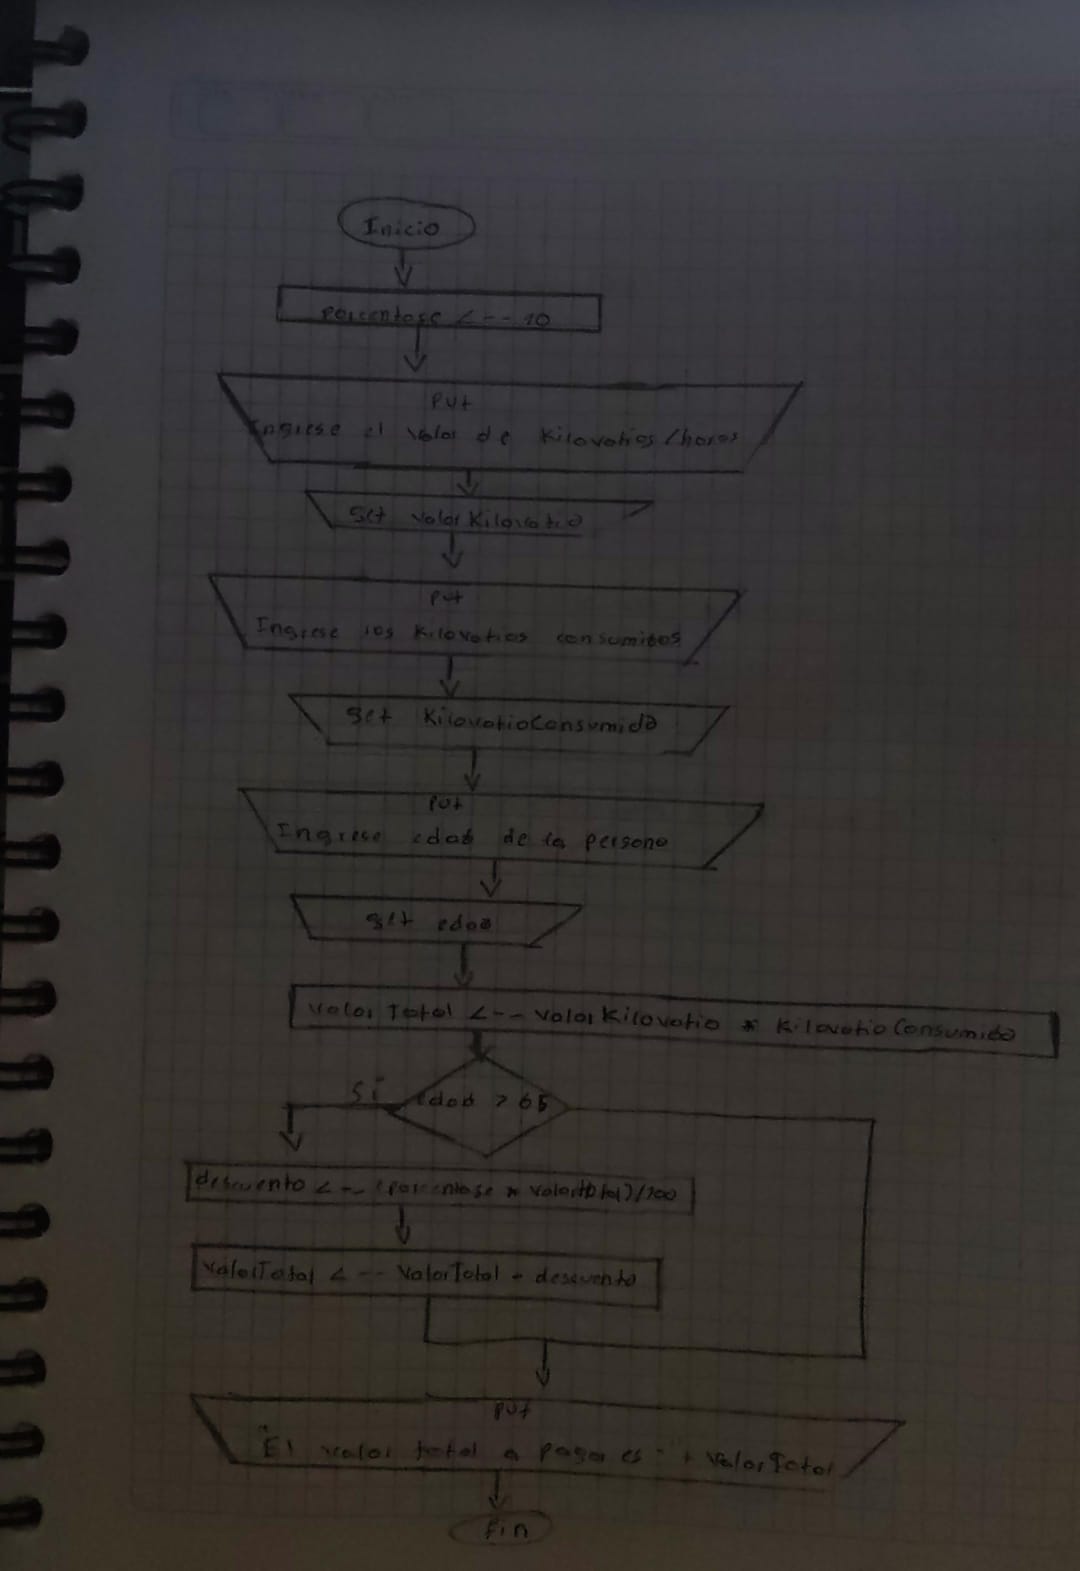 Inicio
porcentage <-- 10
Put
Ingrese el valor de Kilovatios/horas
get valorKilovatio
Put
Ingrese los Kilovatios consumidos
get KilovatioConsumido
Put
Ingrese edad de la persona
get edad
valorTotal <-- valorKilovatio * KilovatioConsumido
Si edad > 65
descuento <-- (porcentage * valorTotal)/100
valorTotal <-- valorTotal - descuento
Put
"El valor total a pagar es " + valorTotal
Fin